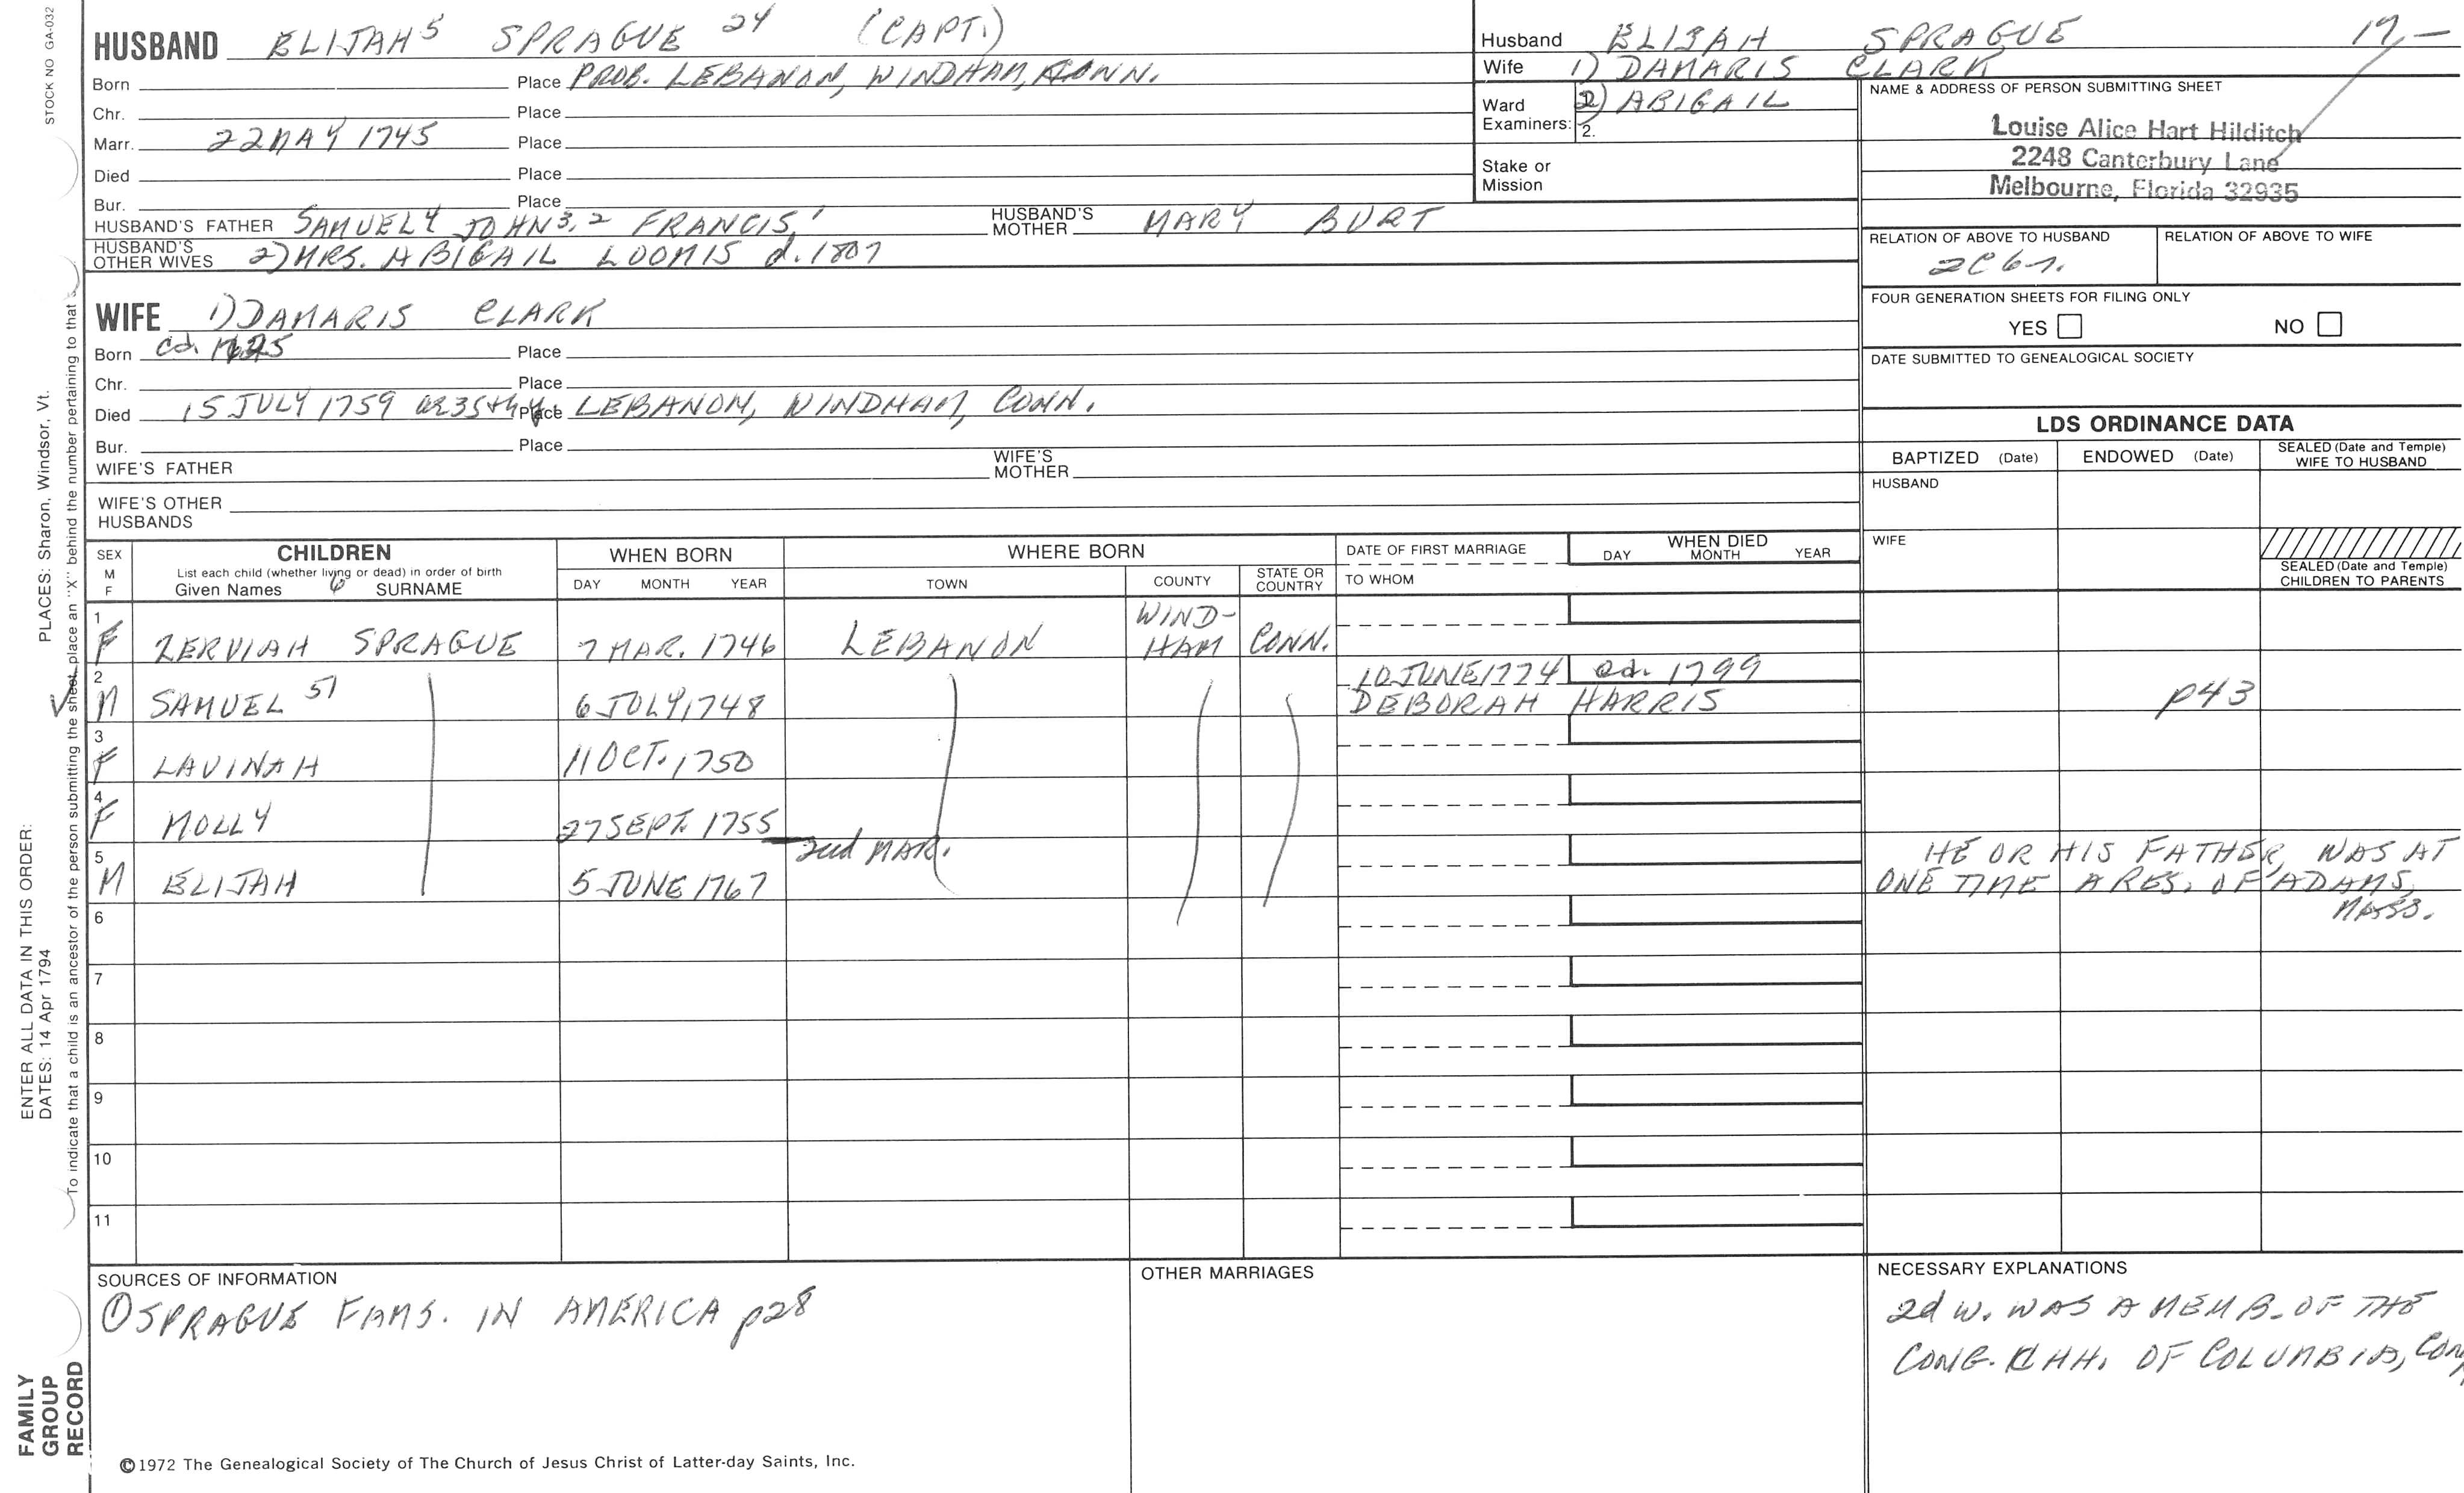 STOCK NO GA-032
HUSBAND ELIJAH5 SPRAGUE 24 (CAPT.)
Born Place PROB. LEBANON, WINDHAM, CONN.
Chr. Place
Marr. 22 MAY 1745 Place
Died Place
Bur. Place
HUSBAND'S FATHER SAMUEL4 JOHN3,2 FRANCIS1 HUSBAND'S MOTHER MARY BURT
HUSBAND'S OTHER WIVES 2) MRS. ABIGAIL LOOMIS d. 1807
WIFE 1) DAMARIS CLARK
Born Place
Chr. Place
Died 15 JULY 1759 Place LEBANON, WINDHAM, CONN.
Bur. Place
WIFE'S FATHER WIFE'S MOTHER
WIFE'S OTHER HUSBANDS
Husband ELIJAH SPRAGUE
Wife 1) DAMARIS CLARK
Ward 2) ABIGAIL
Examiners: 2.
Stake or
Mission
NAME & ADDRESS OF PERSON SUBMITTING SHEET
Louise Alice Hart Hilditch
2248 Canterbury Lane
Melbourne, Florida 32935
RELATION OF ABOVE TO HUSBAND RELATION OF ABOVE TO WIFE
FOUR GENERATION SHEETS FOR FILING ONLY
YES NO
DATE SUBMITTED TO GENEALOGICAL SOCIETY
LDS ORDINANCE DATA
BAPTIZED (Date) ENDOWED (Date) SEALED (Date and Temple) WIFE TO HUSBAND
HUSBAND
WIFE
SEALED (Date and Temple) CHILDREN TO PARENTS
SEX M F
CHILDREN
List each child (whether living or dead) in order of birth
Given Names 6 SURNAME
WHEN BORN
DAY MONTH YEAR
WHERE BORN
TOWN COUNTY STATE OR COUNTRY
DATE OF FIRST MARRIAGE
TO WHOM
WHEN DIED
DAY MONTH YEAR
1 F ZERVIAH SPRAGUE 7 MAR. 1746 LEBANON WIND-HAM CONN.
2 M SAMUEL 51 6 JULY, 1748 10 JUNE 1774 1799
DEBORAH HARRIS p43
3 F LAVINAH 11 OCT. 1750
4 F MOLLY 27 SEPT. 1755
2nd MAR.
5 M ELIJAH 5 JUNE 1767
HE OR HIS FATHER, WAS AT
ONE TIME A RES. OF ADAMS,
MASS.
6
7
8
9
10
11
SOURCES OF INFORMATION
① SPRAGUE FAMS. IN AMERICA p28
OTHER MARRIAGES
NECESSARY EXPLANATIONS
2d W. WAS A MEMB. OF THE
CONG. CHH. OF COLUMBIA, CONN
©1972 The Genealogical Society of The Church of Jesus Christ of Latter-day Saints, Inc.
FAMILY
GROUP
RECORD
ENTER ALL DATA IN THIS ORDER:
DATES: 14 Apr 1794
PLACES: Sharon, Windsor, Vt.
To indicate that a child is an ancestor of the person submitting the sheet, place an "X" behind the number pertaining to that